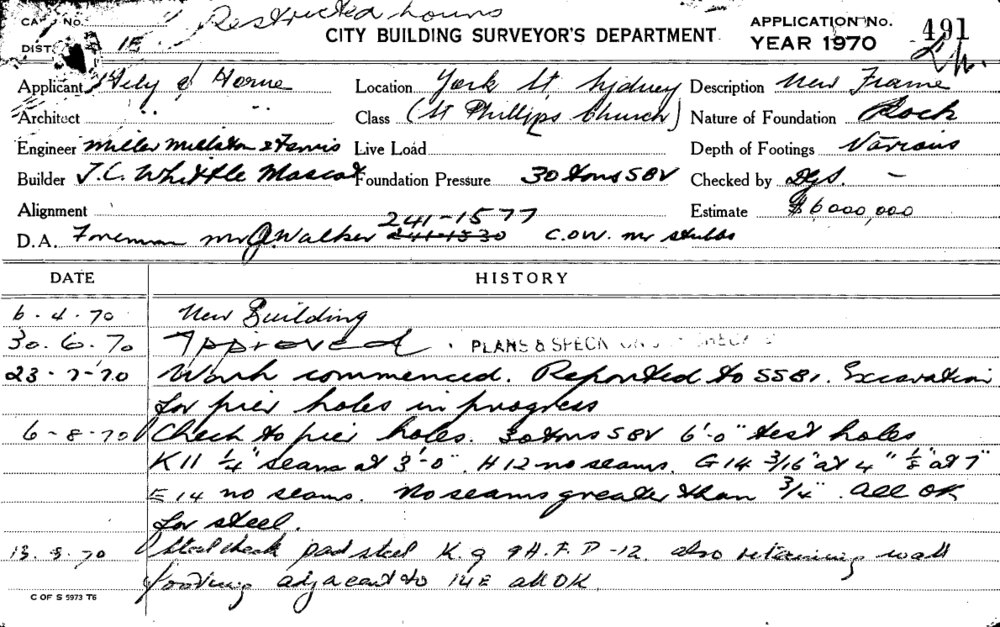 Restricted hours
CARD No.
DIST. 1E
CITY BUILDING SURVEYOR'S DEPARTMENT
APPLICATION No. 491
YEAR 1970
Applicant Hely & Horne
Location York St Sydney
Description New Frame
Architect " "
Class (St Phillips Church)
Nature of Foundation Rock
Engineer Miller Milston & Ferris
Live Load
Depth of Footings Various
Builder J.C. Whittle Mascot
Foundation Pressure 30 tons SBV
Checked by
Alignment
Estimate $6000,000
241-1577
D.A. Foreman Mr J Walker 241-1530 C.O.W. Mr Stubbs
DATE HISTORY
6.4.70 New Building
30.6.70 Approved. PLANS & SPECN
23-7-70 Work commenced. Reported to SSB1. Excavation
for pier holes in progress
6-8-70 Check to pier holes. 30 tons SBV 6'-0" test holes
K11 ¼" seams at 3'-0". H12 no seams. G14 3/16" at 4" ⅛" at 7"
E14 no seams. No seams greater than ¾". All OK
for steel.
13.8.70 Steel check pad steel K.9 9H.F.D-12. also retaining wall
footing adjacent to 14E all OK
C OF S 5973 T6